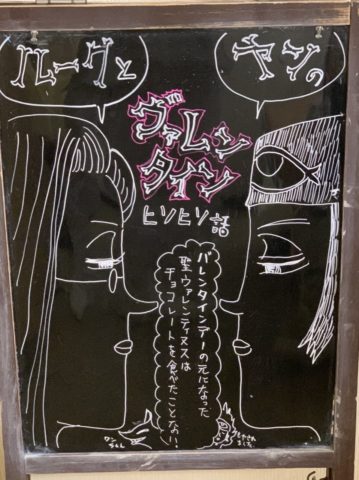 ルーグと
ヤンの
ヴァレン
タイン
ヒソヒソ話
バレンタインデーの元になった
聖ヴァレンティヌスは
チョコレートを食べたことない!